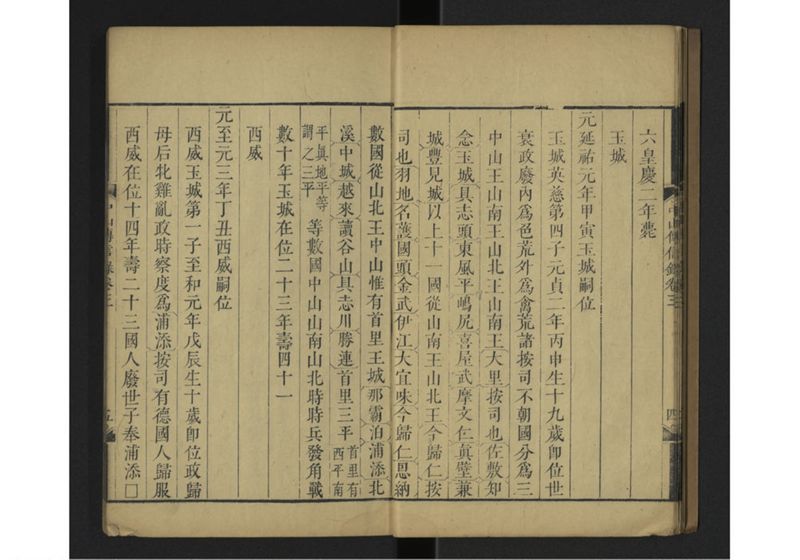 六皇慶二年薨
玉城
元延祐元年甲寅玉城嗣位
玉城英慈第四子元貞二年丙申生十九歲卽位世
衰政廢內爲色荒外爲禽荒諸按司不朝國分爲三
中山王山南王山北王山南王大里按司也佐敷知
念玉城具志頭東風平嶋尻喜屋武摩文仁眞壁兼
城豐見城以上十一國從山南王山北王今歸仁按
司也羽地名護國頭金武伊江大宜味今歸仁恩納
中山傳信錄卷三
四
數國從山北王中山惟有首里王城那霸泊浦添北
溪中城越來讀谷山具志川勝連首里三平首里有西平南
平眞地平等謂之三平等數國中山山南山北時時兵發角戰
數十年玉城在位二十三年壽四十一
西威
元至元三年丁丑西威嗣位
西威玉城第一子至和元年戊辰生十歲卽位政歸
母后牝雞亂政時察度爲浦添按司有德國人歸服
西威在位十四年壽二十三國人廢世子奉浦添□
中山傳信錄卷三
五